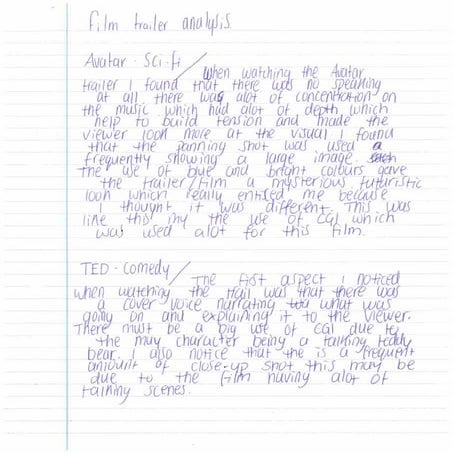 Film trailer analysis.
Avatar - Sci-fi
When watching the Avatar
trailer I found that there was no speaking
at all there was alot of concentration on
the music which had alot of depth which
help to build tension and made the
viewer look more at the visual I found
that the panning shot was used a
frequently showing a large image.
The use of blue and bright colours gave
the trailer/film a mysterious futuristic
look which really enticed me because
I thought it was different. This was
like this my the use of CGI which
was used alot for this film.
TED - Comedy
The first aspect I noticed
when watching the trail was that there was
a cover voice narrating what was
going on and explaining it to the viewer.
There must be a big use of CGI due to
the may character being a talking teddy
bear. I also notice that the is a frequent
amount of close-up shot this may be
due to the film having alot of
talking scenes.